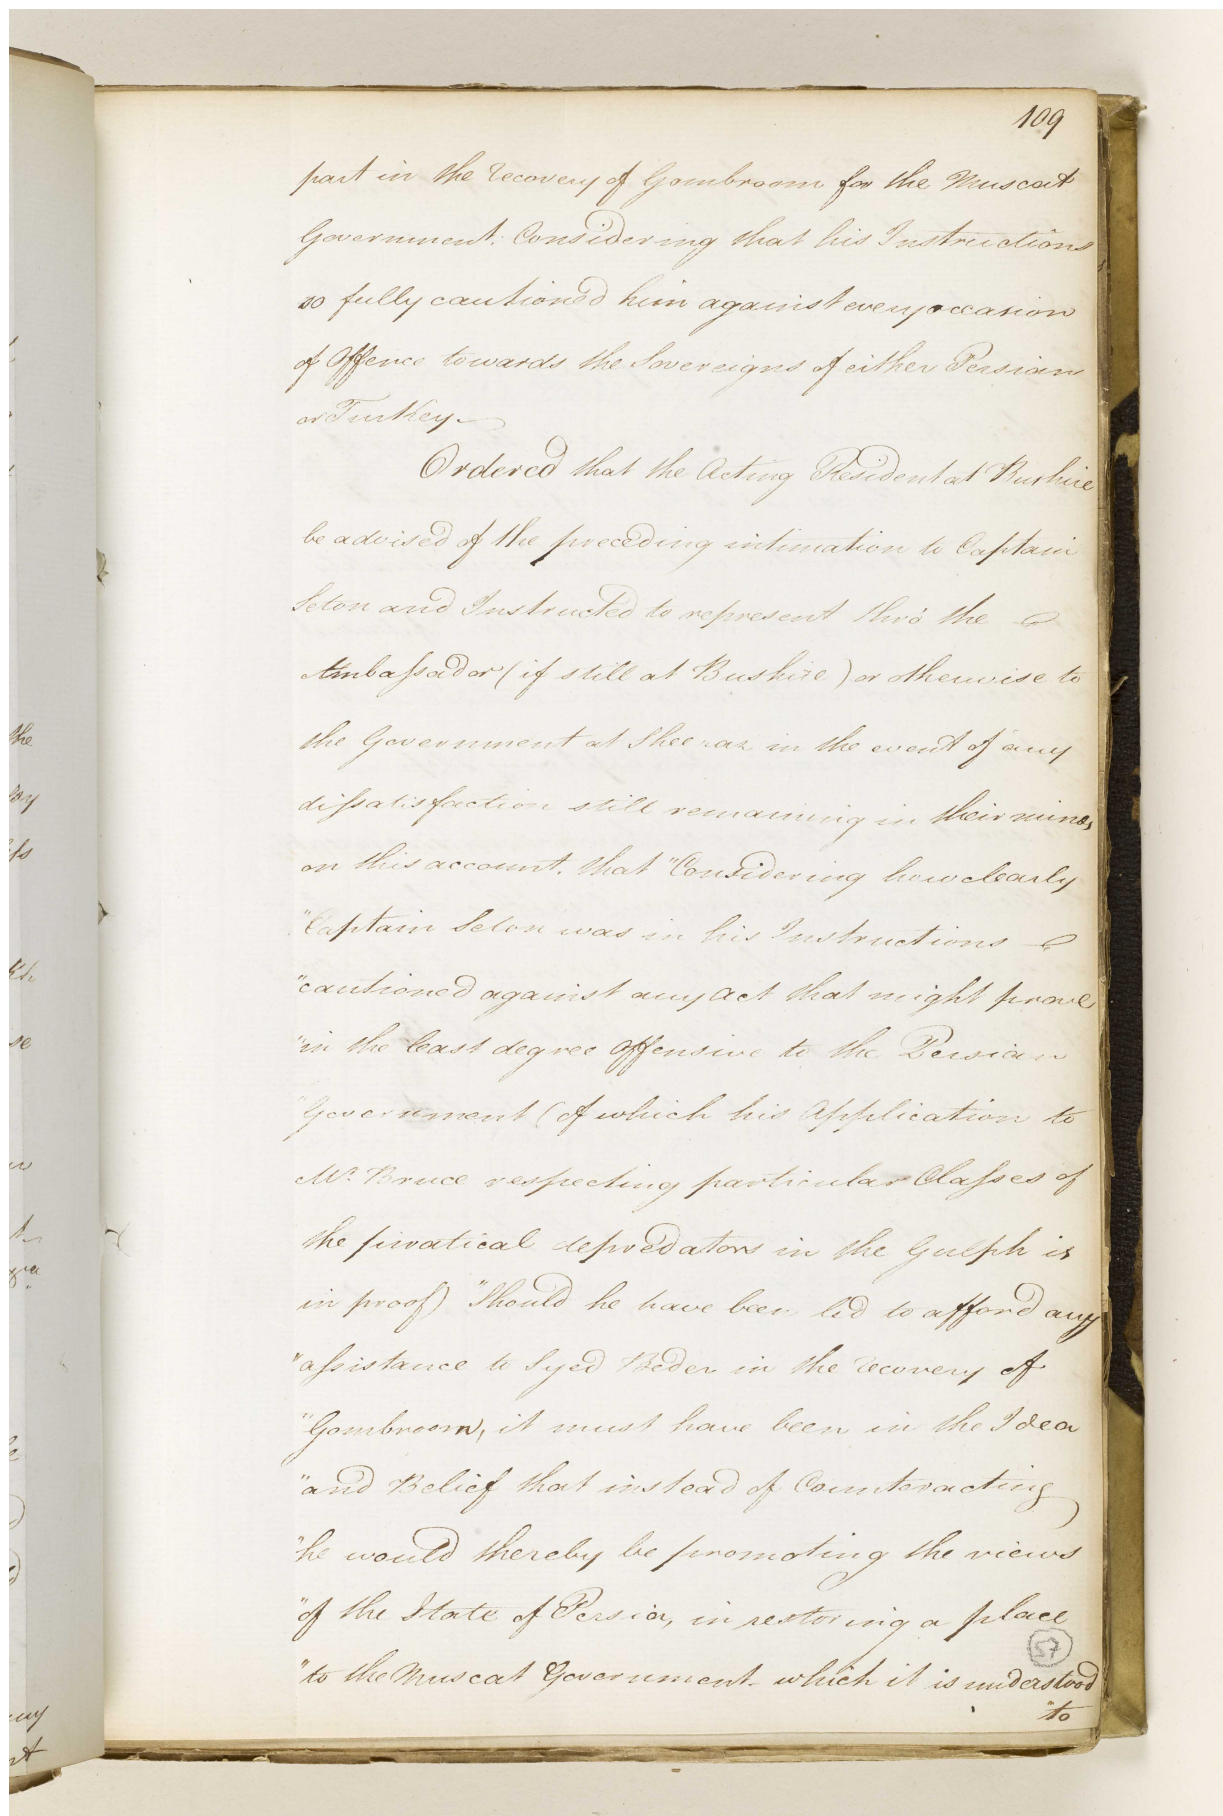 109
part in the recovery of Gombroom for the Muscat
Government: Considering that his Instructions
so fully cautioned him against every occasion
of Offence towards the Sovereigns of either Persian
or Turkey
Ordered that the Acting Resident at Bushire
be advised of the preceding intimation to Captain
Seton and Instructed to represent thro' the
Ambaſsador (if still at Bushire) or otherwise to
the Government at Sheeraz in the event of any
diſsatisfaction still remaining in their minds
on this account. that "Considering how clearly
"Captain Seton was in his Instructions
"cautioned against any act that might prove
"in the least degree offensive to the Persian
"Government (of which his Application to
Mr. Bruce respecting particular Claſses of
the piratical depredators in the Gulph is
in proof) "Should he have been led to afford any
"aſsistance to Syed Beder in the recovery of
"Gombroom, it must have been in the Idea
"and Belief that instead of Counteracting
"he would thereby be promoting the views
"of the State of Persia, in restoring a place
"to the Muscat Government which it is understood
"to
57